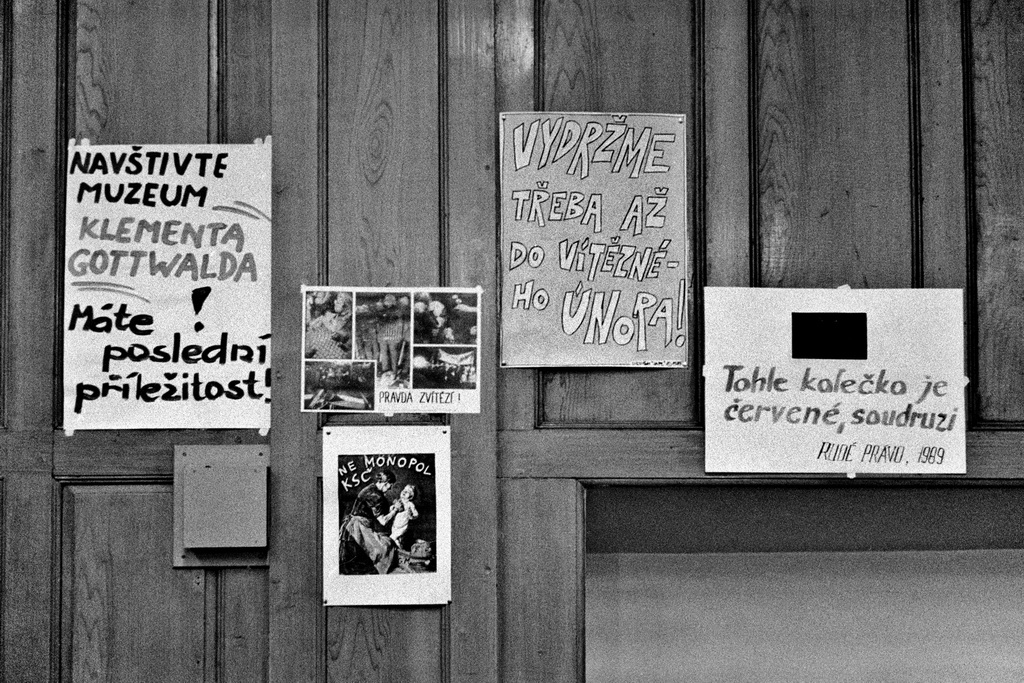 NAVŠTIVTE
MUZEUM
KLEMENTA
GOTTWALDA
!
Máte
poslední
příležitost!
PRAVDA ZVÍTĚZÍ!
NE MONOPOL
KSČ
VYDRŽME
TŘEBA AŽ
DO VÍTĚZNÉ-
HO ÚNORA!
Tohle kolečko je
červené, soudruzi
RUDÉ PRÁVO, 1989